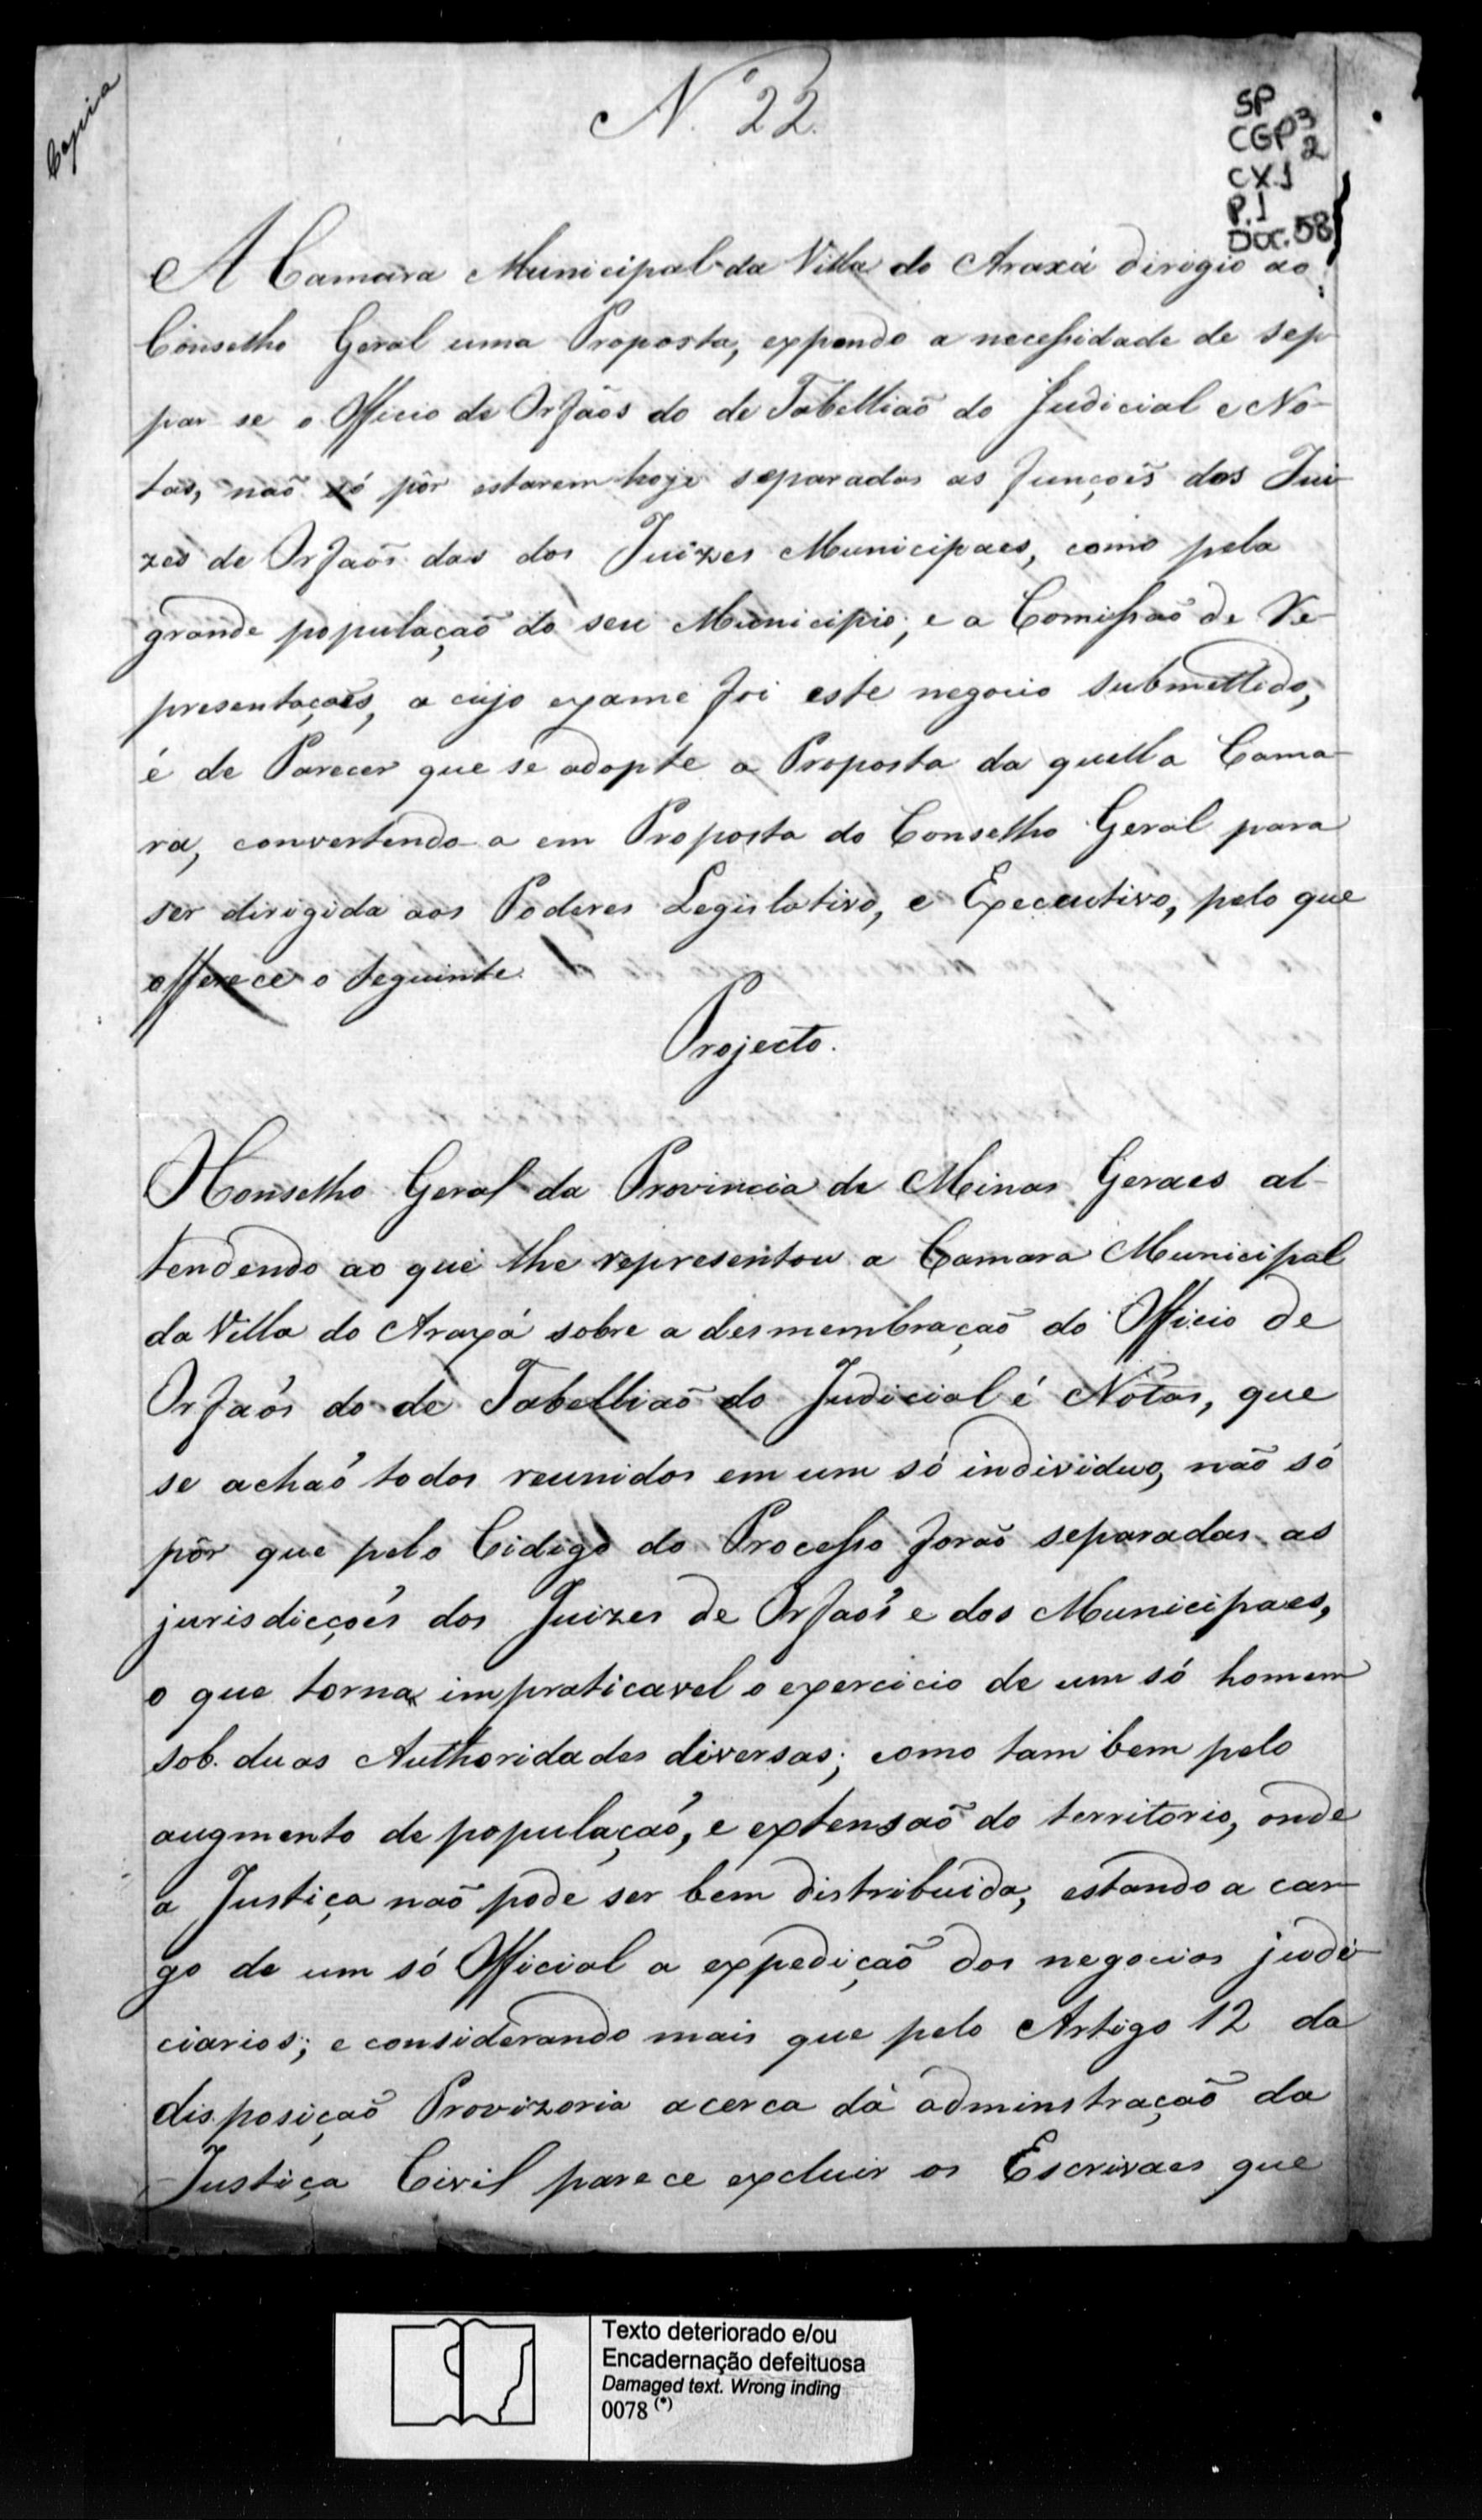 Copia
N. 22.
SP
CGP 3
2
CX.1
P.1
DOC. 58
A Camara Municipal da Villa do Araxá dirigio ao
Conselho Geral uma Proposta, expondo a necessidade de sep
par se o Officio de Orfãos do de Tabelliaõ do Judicial e No-
tas, naõ só pôr estarem hoje separadas as funçoẽs dos Jui-
zes de Orfaõs das dos Juizes Municipaes, como pela
grande populaçaõ do seu Municipio; e a Comissaõ de Re-
presentaçoẽs, a cujo exame foi este negocio submettido,
é de Parecer que se adopte a Proposta da quella Cama-
ra, convertendo a em Proposta do Conselho Geral para
ser dirigida aos Poderes Legislativo, e Executivo, pelo que
offerece o seguinte
Projecto.
O Conselho Geral da Provincia de Minas Geraes at-
tendendo ao que lhe representou a Camara Municipal
da Villa do Araxá sobre a desmembraçaõ do Officio de
Orfaõs do de Tabelliaõ do Judicial é Notas, que
se achaõ todos reunidos em um só individuo, não só
pôr que pelo Cidigo do Processo foraõ separadas as
jurisdicçoẽs dos Juizes de Orfaõs e dos Municipaes,
o que torna impraticavel o exercicio de um só homem
sob. duas Authoridades diversas; como tam bem pelo
augmento de populaçaõ, e extensaõ do territorio, onde
a Justiça naõ pode ser bem distribuida, estando a car-
go de um só Official a expediçaõ dos negocios judi-
ciarios; e considerando mais que pelo Artigo 12 da
disposiçaõ Provizoria acerca da adminstraçaõ da
Justiça Civil parece excluir os Escrivaes que
Texto deteriorado e/ou
Encadernação defeituosa
Damaged text. Wrong inding
0078 (*)